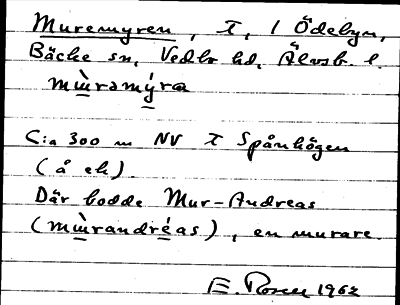 Muremyren, T, 1 Ödebyn,
Bäcke sn, Vedbo hd, Älvsb. l.
mùrəmýra
C:a 300 m NV T Spånhögen
(å ek).
Där bodde Mur-Andreas
(mùrandréas), en murare.
E. Rosen 1962